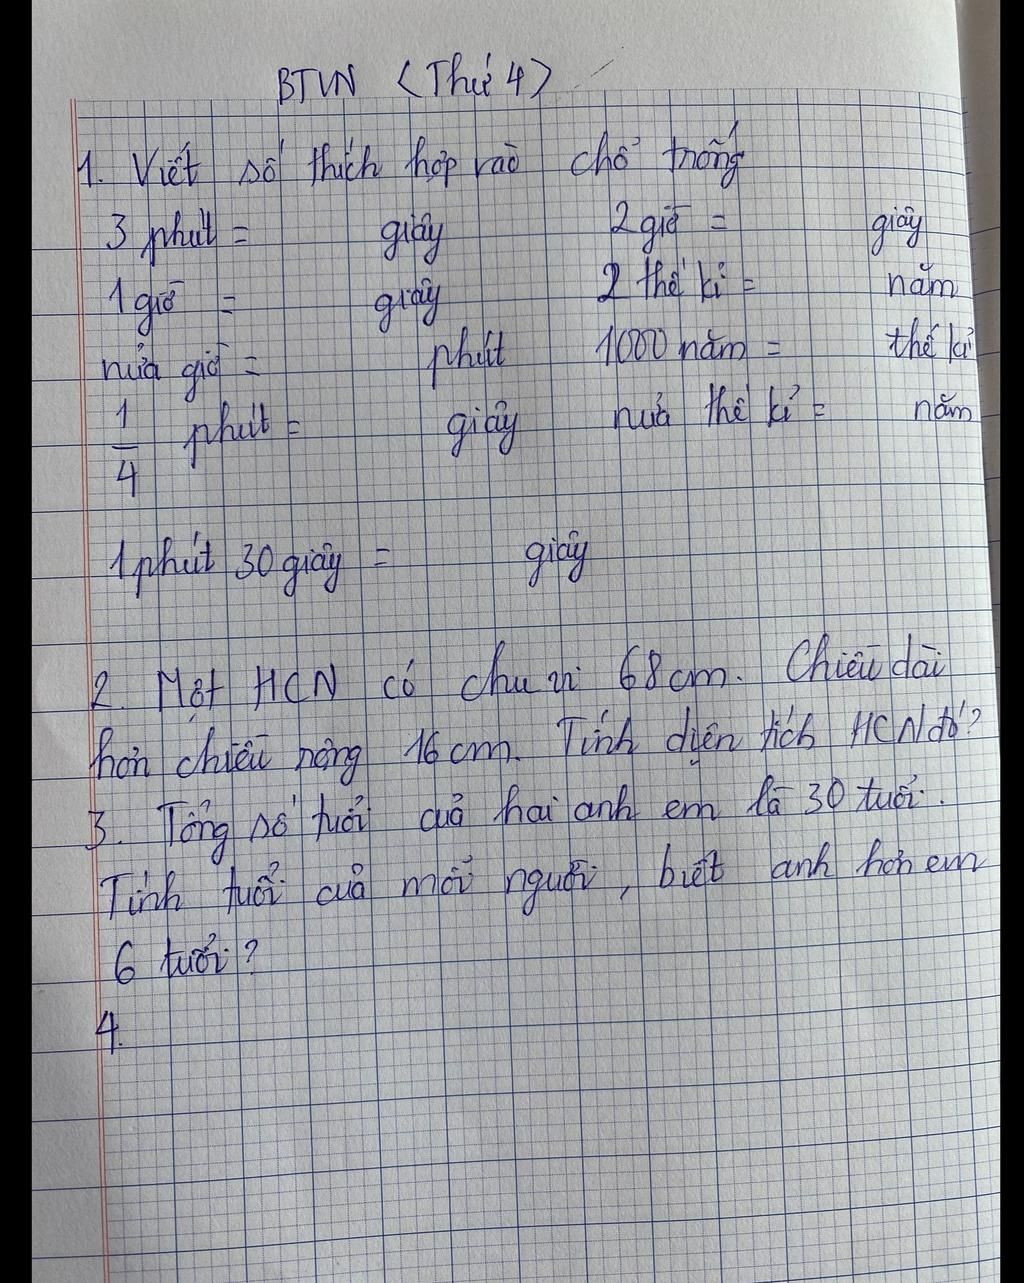 BTVN (Thứ 4)
1. Viết số thích hợp vào chỗ trống
3 phút = giây 2 giờ = giây
1 giờ = giây 2 thế kỉ = năm
nửa giờ = phút 1000 năm = thế kỉ
1/4 phút = giây nửa thế kỉ = năm
1 phút 30 giây = giây
2. Một HCN có chu vi 68 cm. Chiều dài
hơn chiều rộng 16 cm. Tính diện tích HCN đó?
3. Tổng số tuổi của hai anh em là 30 tuổi.
Tính tuổi của mỗi người, biết anh hơn em
6 tuổi?
4.